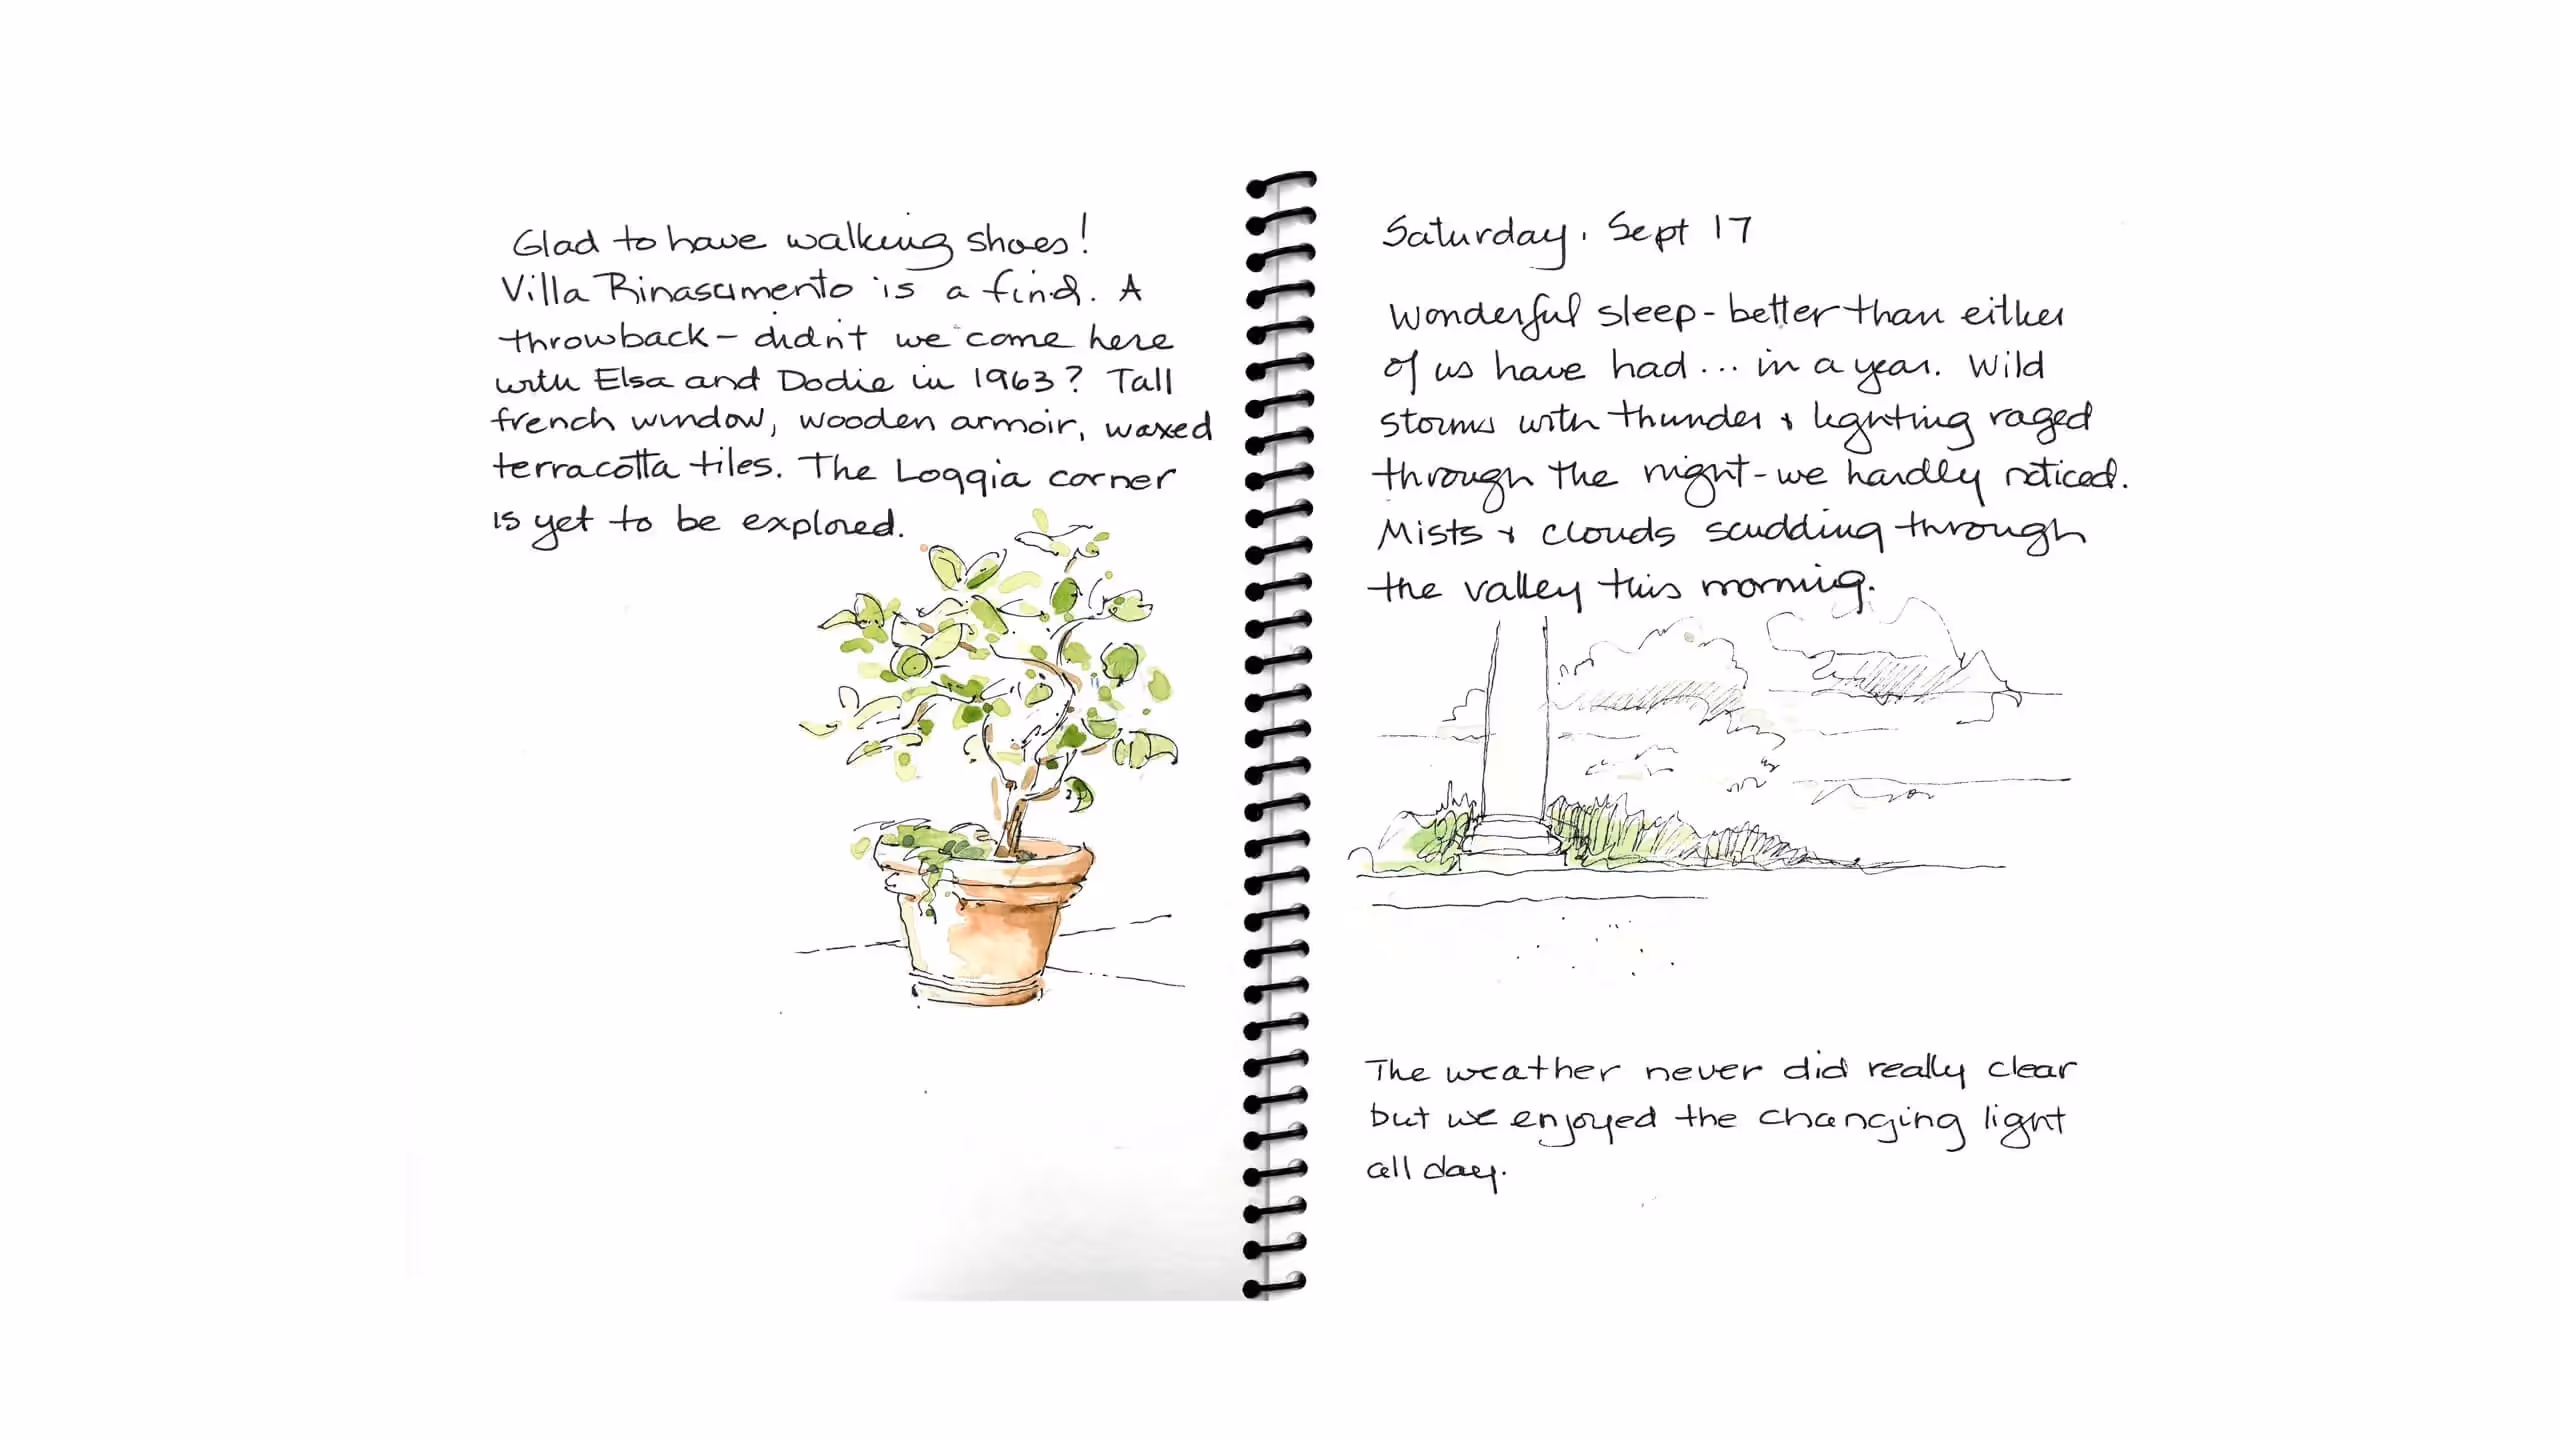 Glad to have walking shoes!
Villa Rinascimento is a find. A
throwback - didn't we come here
with Elsa and Dodie in 1963? Tall
french window, wooden armoir, waxed
terracotta tiles. The Loggia corner
is yet to be explored.
Saturday, Sept 17
Wonderful sleep - better than either
of us have had ... in a year. Wild
storms with thunder + lighting raged
through the night - we hardly noticed.
Mists + clouds scudding through
the valley this morning.
The weather never did really clear
but we enjoyed the changing light
all day.